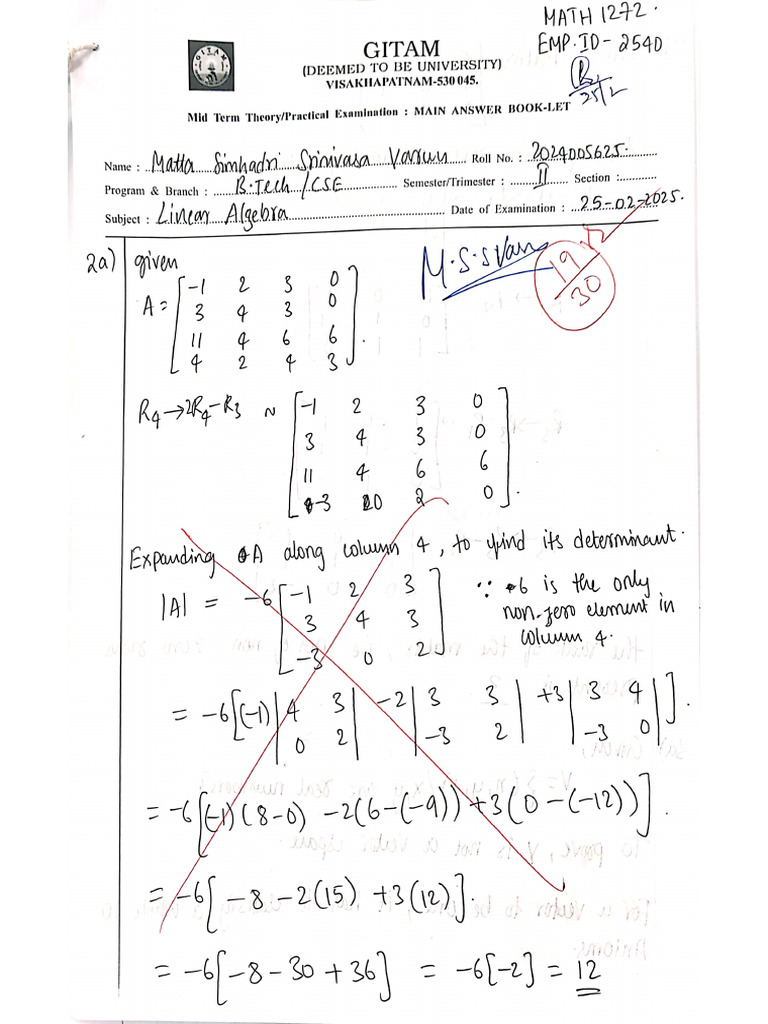 MATH 1272.
EMP.ID - 2540
25/2
GITAM
GITAM
(DEEMED TO BE UNIVERSITY)
VISAKHAPATNAM-530 045.
Mid Term Theory/Practical Examination : MAIN ANSWER BOOK-LET
Name : Matta Simhadri Srinivasa Varun Roll No. : 2024005625.
Program & Branch : B.Tech / CSE Semester/Trimester : II Section :
Subject : Linear Algebra Date of Examination : 25-02-2025.
M.S.S Varun
19/30
2a) given
A = [-1 2 3 0
3 4 3 0
11 4 6 6
4 2 4 3].
R4 → 2R4 - R3 ~ [-1 2 3 0
3 4 3 0
11 4 6 6
-3 0 2 0].
Expanding A along column 4, to find its determinant.
|A| = -6 [-1 2 3
3 4 3
-3 0 2]
∵ 6 is the only
non-zero element in
column 4.
= -6[(-1) |4 3
0 2| -2 |3 3
-3 2| +3 |3 4
-3 0|].
= -6[(-1)(8-0) -2(6-(-9)) +3(0-(-12))].
= -6[-8 -2(15) +3(12)].
= -6[-8 -30 +36] = -6[-2] = 12